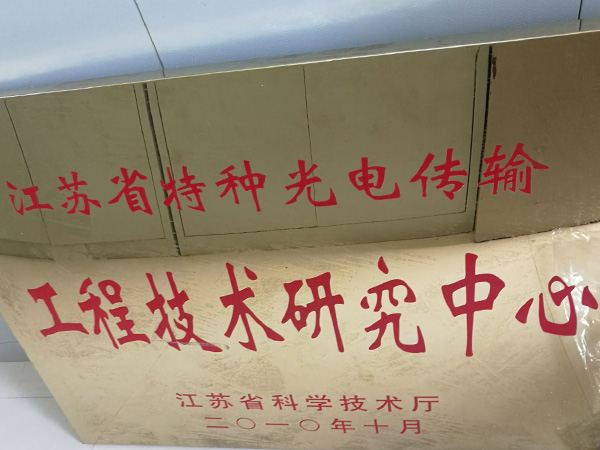 江苏省特种光电传输
工程技术研究中心
江苏省科学技术厅
二〇一〇年十月